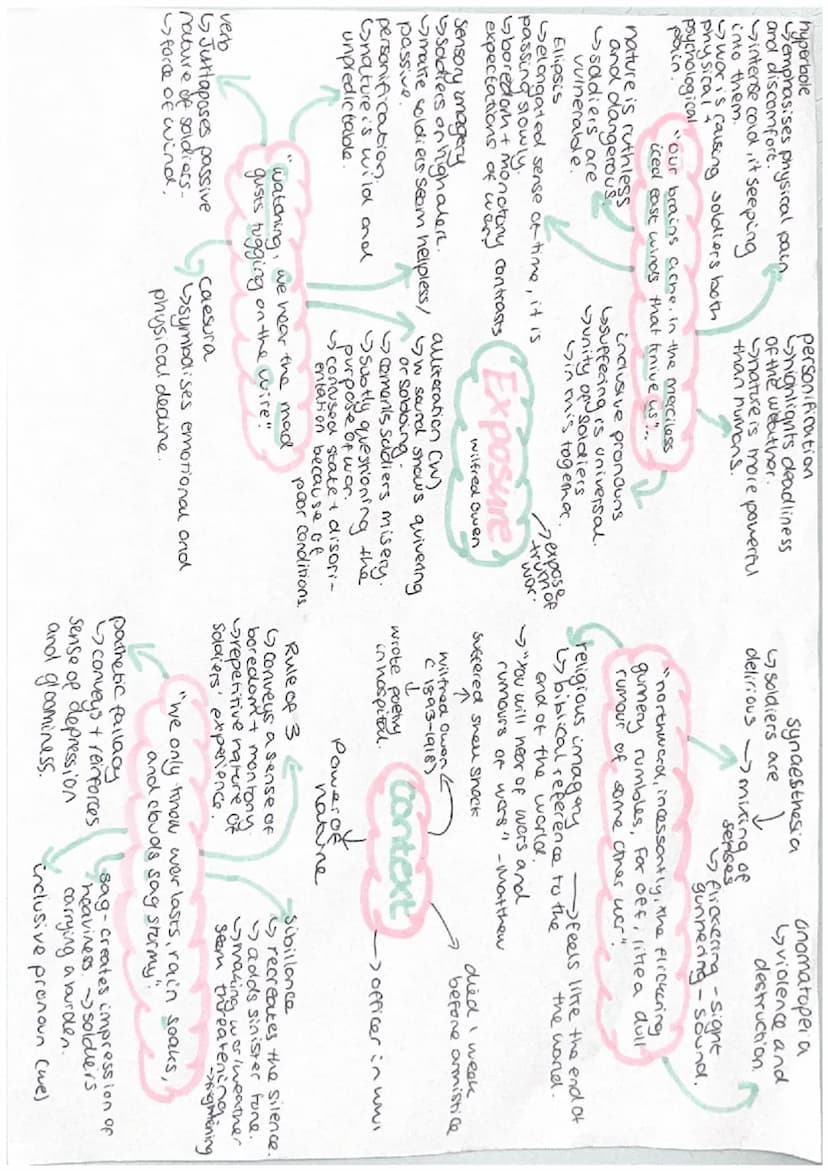 hyperbole
↳ emphasises physical pain
and discomfort.
↳ intense cold, it seeping
into them.
↳ war is causing soldiers both
physical +
psychological
pain.
personification
↳ highlights deadliness
of the weather.
↳ nature is more powerful
than humans.
"our brains ache, in the merciless
iced east winds that knive us"...
nature is ruthless
and dangerous
↳ soldiers are
vulnerable.
Ellipsis
↳ elongated sense of time, it is
passing slowly.
↳ boredom + monotony contrasts
expectations of war
inclusive pronouns
↳ suffering is universal.
↳ unity of soldiers
↳ in this together.
Exposure
Wilfred Owen
→ expose
truth of
war.
sensory imagery
↳ soldiers on high alert.
↳ make soldiers seem helpless/
passive.
personification
↳ nature is wild and
unpredictable.
alliteration (W)
↳ w sound shows quivering
or sobbing.
↳ cements soldiers misery.
↳ subtly questioning the
purpose of war.
↳ confused state + disori-
entation because of
poor conditions.
"watching, we hear the mad
gusts tugging on the wire".
verb
↳ Juxtaposes passive
nature of soldiers -
↳ force of wind.
caesura
↳ symbolises emotional and
physical decline.
synaesthesia
↳ soldiers are
delirious → mixing of
senses
↳ flickering - sight
gunnering - sound.
onomatoperia
↳ violence and
destruction.
"northward, incessantly, the flickering
gunnery rumbles, far off, like a dull
rumour of some other war".
religious imagery → feels like the end of
the world.
↳ biblical reference to the
end of the world.
→ "You will hear of wars and
rumours of wars" - Matthew
context
wilfred owen
(1893-1918)
suffered shell shock
wrote poetry
in hospital.
died 1 week
before armistice
→ officer in WW1
Power of
nature
Rule of 3
↳ conveys a sense of
boredom + montony
↳ repetitive nature of
soldiers' experience.
sibillance
↳ recreates the silence.
↳ adds sinister tone.
↳ making war/weather
seem threatening
→ frightening
"We only know war lasts, rain soaks,
and clouds sag stormy".
pathetic fallacy
↳ conveys + reinforces
sense of depression
and gloominess.
sag - creates impression of
heaviness. → soldiers
carrying a burden.
inclusive pronoun (we)